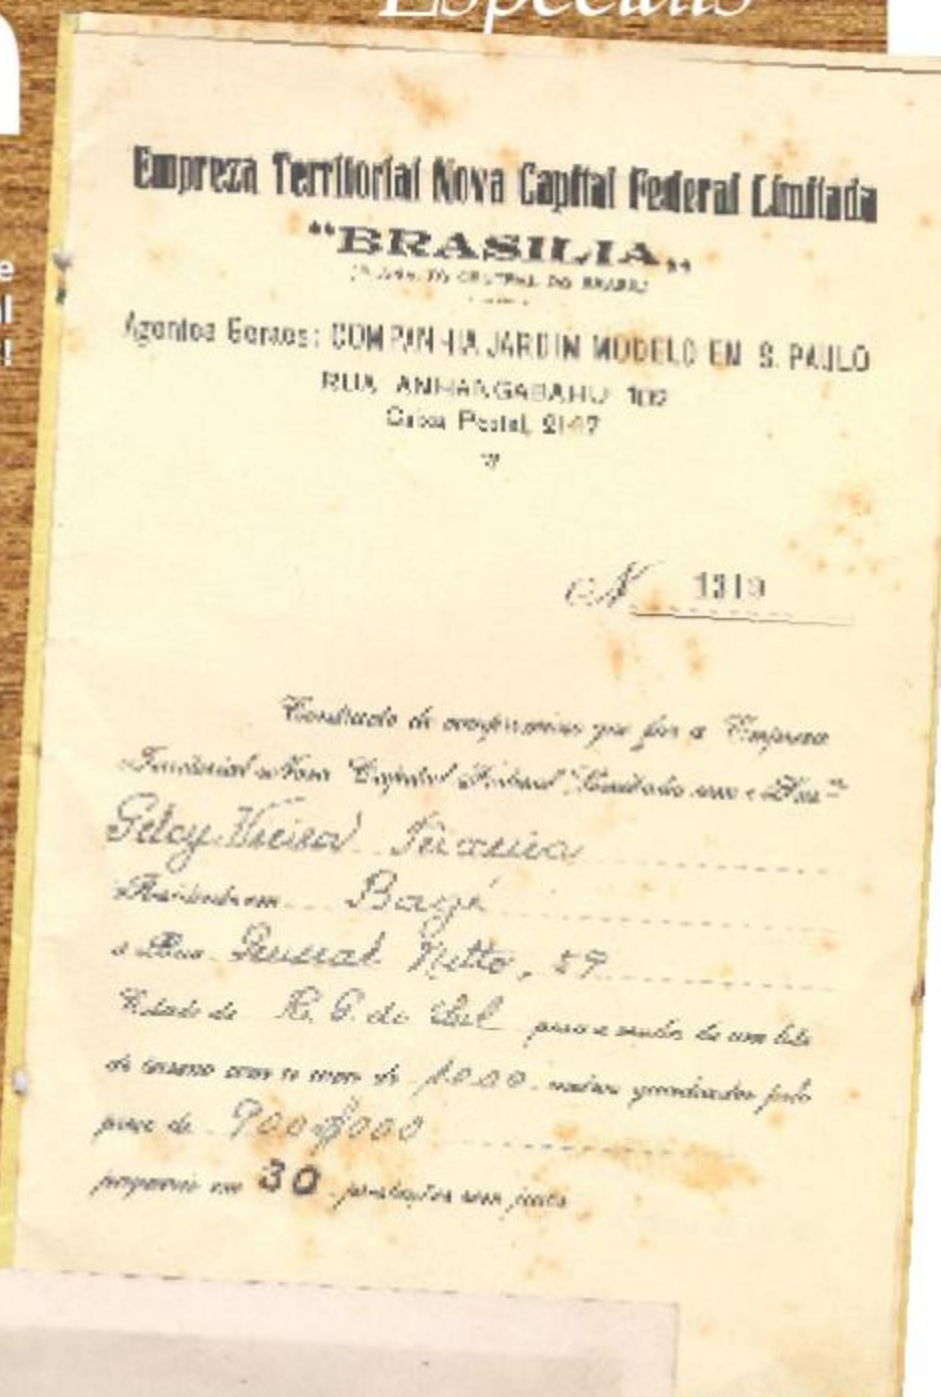 Especiais
e
l
!
Empreza Territorial Nova Capital Federal Limitada
"BRASILIA"
(PLANALTO CENTRAL DO BRASIL)
Agentes Geraes: COMPANHIA JARDIM MODELO EM S. PAULO
RUA ANHANGABAHU 102
Caixa Postal, 2147
N 1319
Contracto de que faz a Empreza
Territorial Nova Capital Federal Limitada com o
Vieira
Residente em Bagé
a Rua General Netto, 59
Estado de R. G. do Sul para a venda de um lote
de terreno com a area de 1000 metros quadrados pelo
preço de 900$000
pagaveis em 30 prestações sem juros